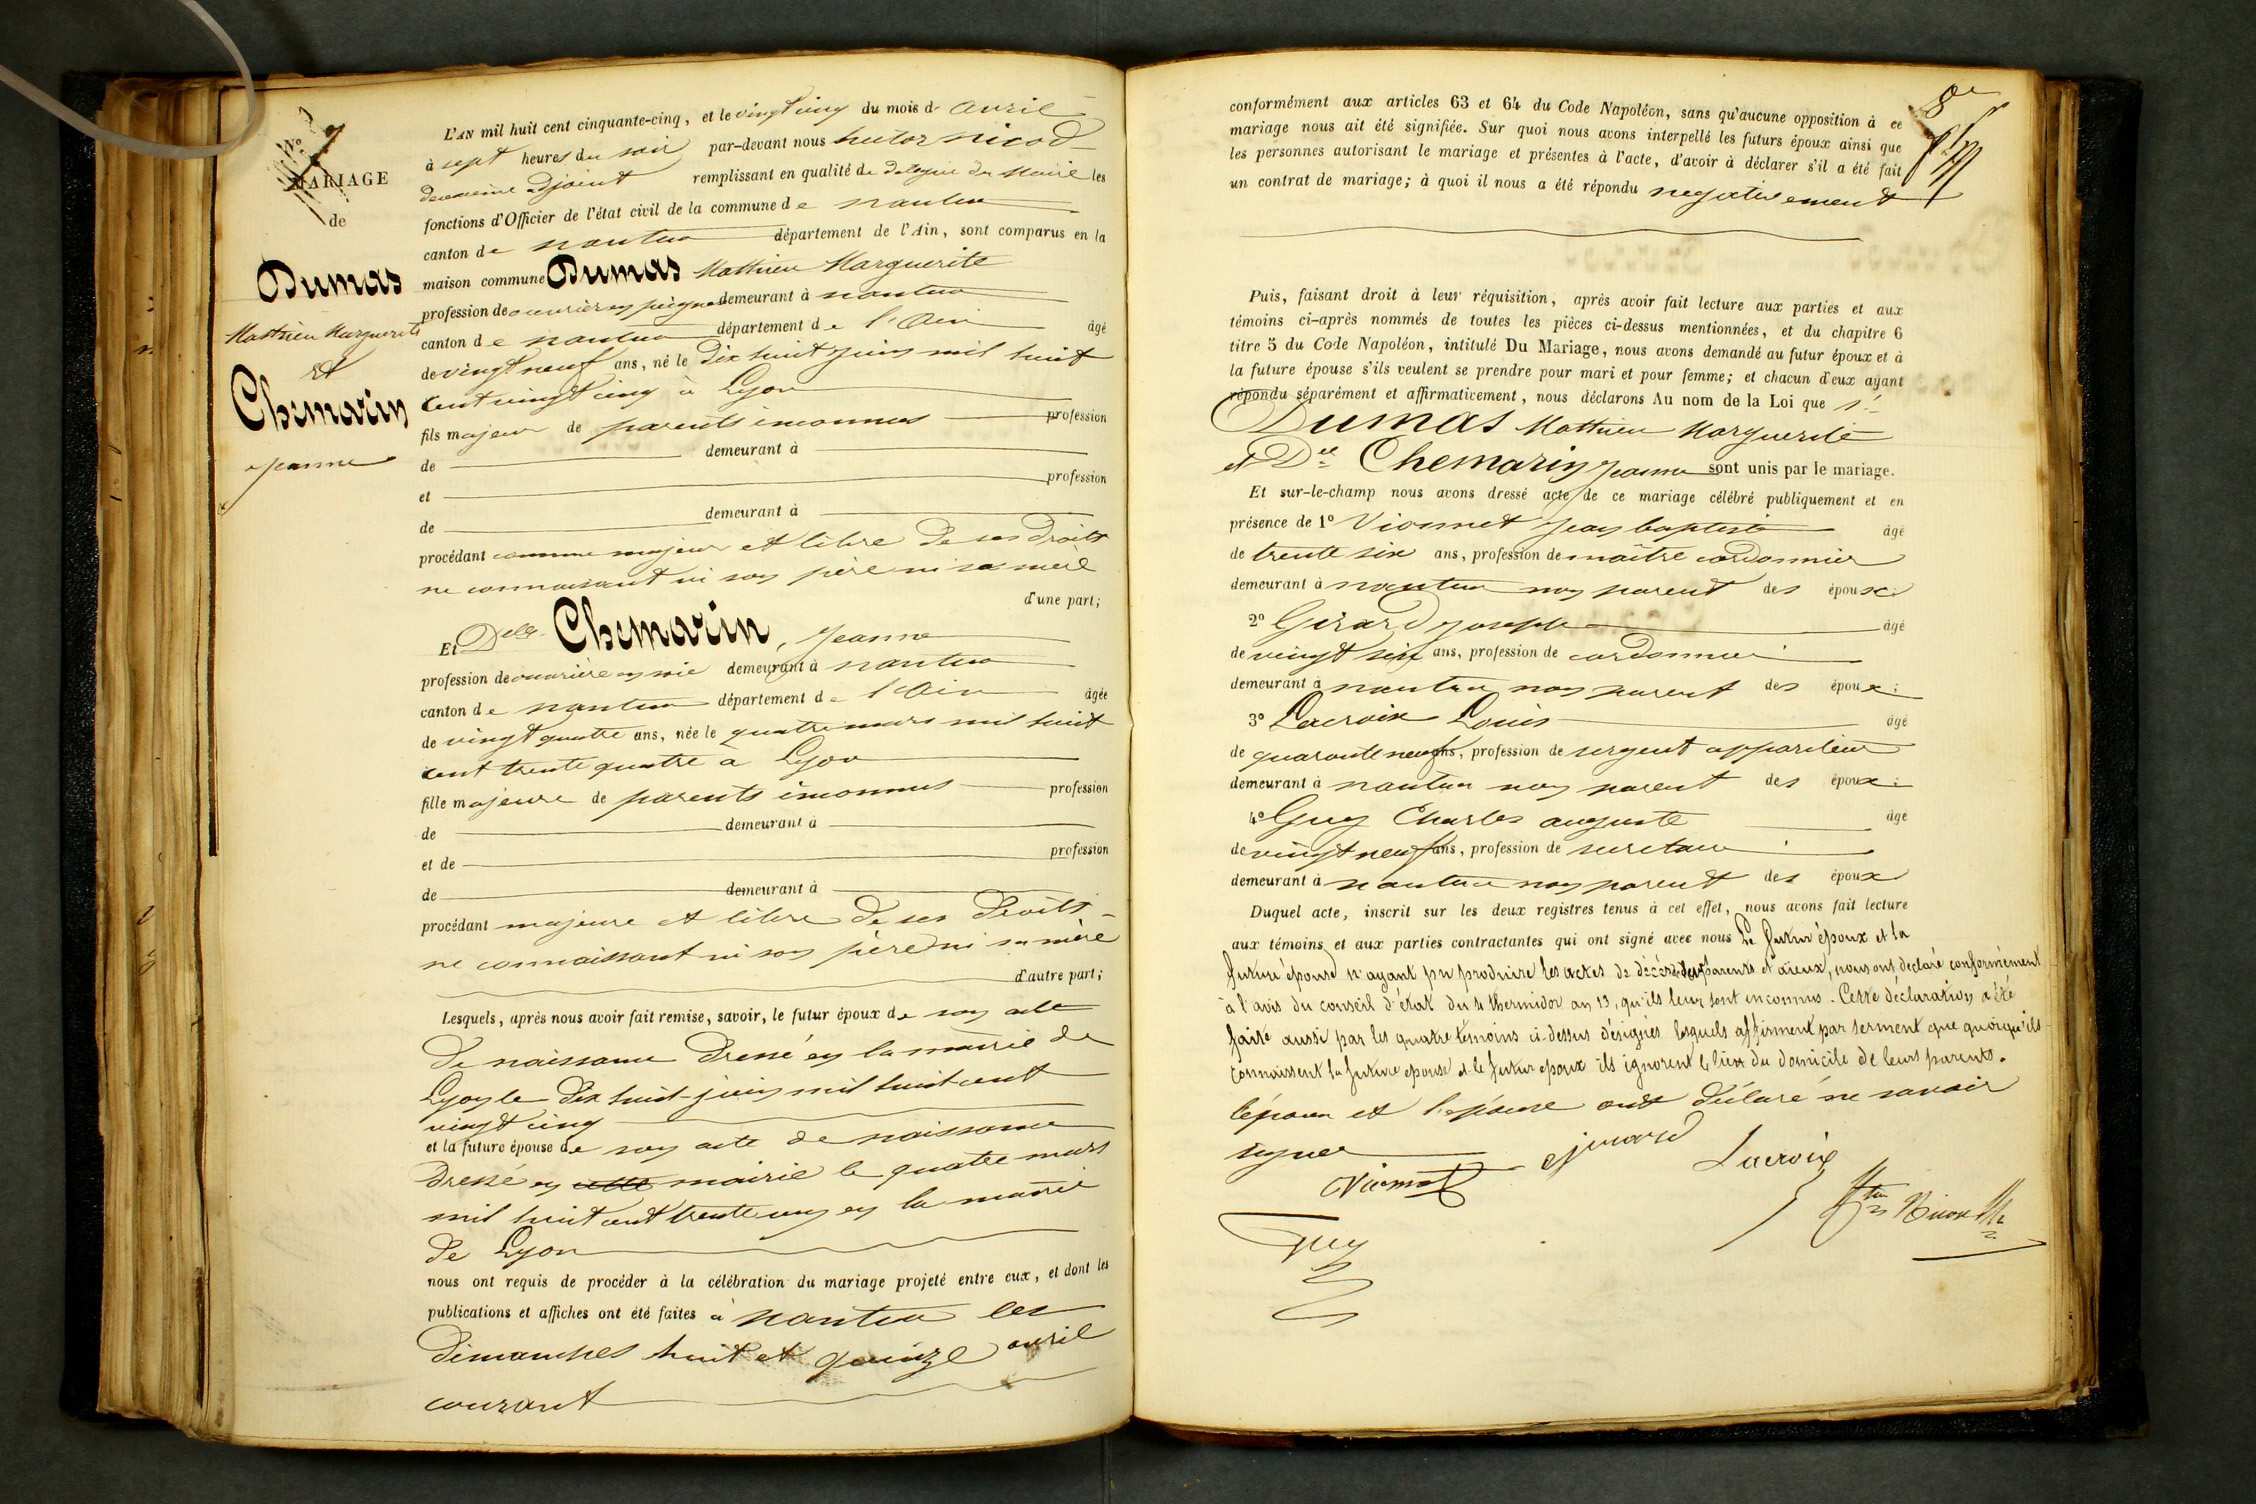 No 7
MARIAGE
de
Dumas
Mathieu Marguerite
et
Chemarin
Jeanne
L'AN mil huit cent cinquante-cinq, et le vingt cinq du mois d' avril
à sept heures du soir par-devant nous hector nicod
deuxième adjoint remplissant en qualité de délégué du Maire les
fonctions d'Officier de l'état civil de la commune de nantua
canton de nantua département de l'Ain, sont comparus en la
maison commune Dumas Mathieu Marguerite
profession de ouvrier en peignes demeurant à nantua
canton de nantua département de l'Ain âgé
de vingt neuf ans, né le dix huit juin mil huit
cent vingt cinq à Lyon
fils majeur de parents inconnus profession
de demeurant à
et profession
de demeurant à
procédant comme majeur et libre de ses droits
ne connaissant ni son père ni sa mère
d'une part;
Et Delle Chemarin, Jeanne
profession de ouvrière en soie demeurant à nantua
canton de nantua département de l'Ain âgée
de vingt quatre ans, née le quatre mars mil huit
cent trente quatre à Lyon
fille majeure de parents inconnus profession
de demeurant à
et de profession
de demeurant à
procédant majeure et libre de ses droits
ne connaissant ni son père ni sa mère
d'autre part;
Lesquels, après nous avoir fait remise, savoir, le futur époux de son acte
de naissance dressé en la mairie de
Lyon le dix huit juin mil huit cent
vingt cinq
et la future épouse de son acte de naissance
dressé en cette mairie le quatre mars
mil huit cent trente un en la mairie
de Lyon
nous ont requis de procéder à la célébration du mariage projeté entre eux, et dont les
publications et affiches ont été faites à nantua les
dimanches huit et quinze avril
courant
8e
conformément aux articles 63 et 64 du Code Napoléon, sans qu'aucune opposition à ce
mariage nous ait été signifiée. Sur quoi nous avons interpellé les futurs époux ainsi que
les personnes autorisant le mariage et présentes à l'acte, d'avoir à déclarer s'il a été fait
un contrat de mariage; à quoi il nous a été répondu negativement
Puis, faisant droit à leur réquisition, après avoir fait lecture aux parties et aux
témoins ci-après nommés de toutes les pièces ci-dessus mentionnées, et du chapitre 6
titre 5 du Code Napoléon, intitulé Du Mariage, nous avons demandé au futur époux et à
la future épouse s'ils veulent se prendre pour mari et pour femme; et chacun d'eux ayant
répondu séparément et affirmativement, nous déclarons Au nom de la Loi que sr
Dumas Mathieu Marguerite
et Dlle Chemarin Jeanne sont unis par le mariage.
Et sur-le-champ nous avons dressé acte de ce mariage célébré publiquement et en
présence de 1° Vionnet Jean baptiste âgé
de trente six ans, profession de maître cordonnier
demeurant à nantua non parent des époux:
2° Girard Joseph âgé
de vingt six ans, profession de cordonnier
demeurant à nantua non parent des époux:
3° Lacroix Louis âgé
de quarante neuf ans, profession de sergent appariteur
demeurant à nantua non parent des époux:
4° Guy Charles auguste âgé
de vingt neuf ans, profession de secretaire
demeurant à nantua non parent des époux
Duquel acte, inscrit sur les deux registres tenus à cet effet, nous avons fait lecture
aux témoins et aux parties contractantes qui ont signé avec nous Le futur époux et la
future épouse n'ayant pu produire les actes de décès de leurs parents et aïeux, nous ont déclaré conformément
à l'avis du conseil d'état du 4 thermidor an 13, qu'ils leur sont inconnus. Cette déclaration a été
faite aussi par les quatre témoins ci-dessus désignés lesquels affirment par serment que quoiqu'ils
connaissent la future epouse et le futur epoux ils ignorent le lieu du domicile de leurs parents.
l'époux et l'epouse ont déclaré ne savoir
signer
Vionnet
girard
Lacroix
Guy
Hr Nicod